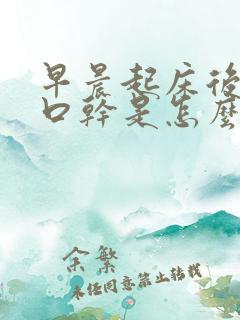 早晨起床後
口幹是怎麼
余繁
未经同意禁止转载